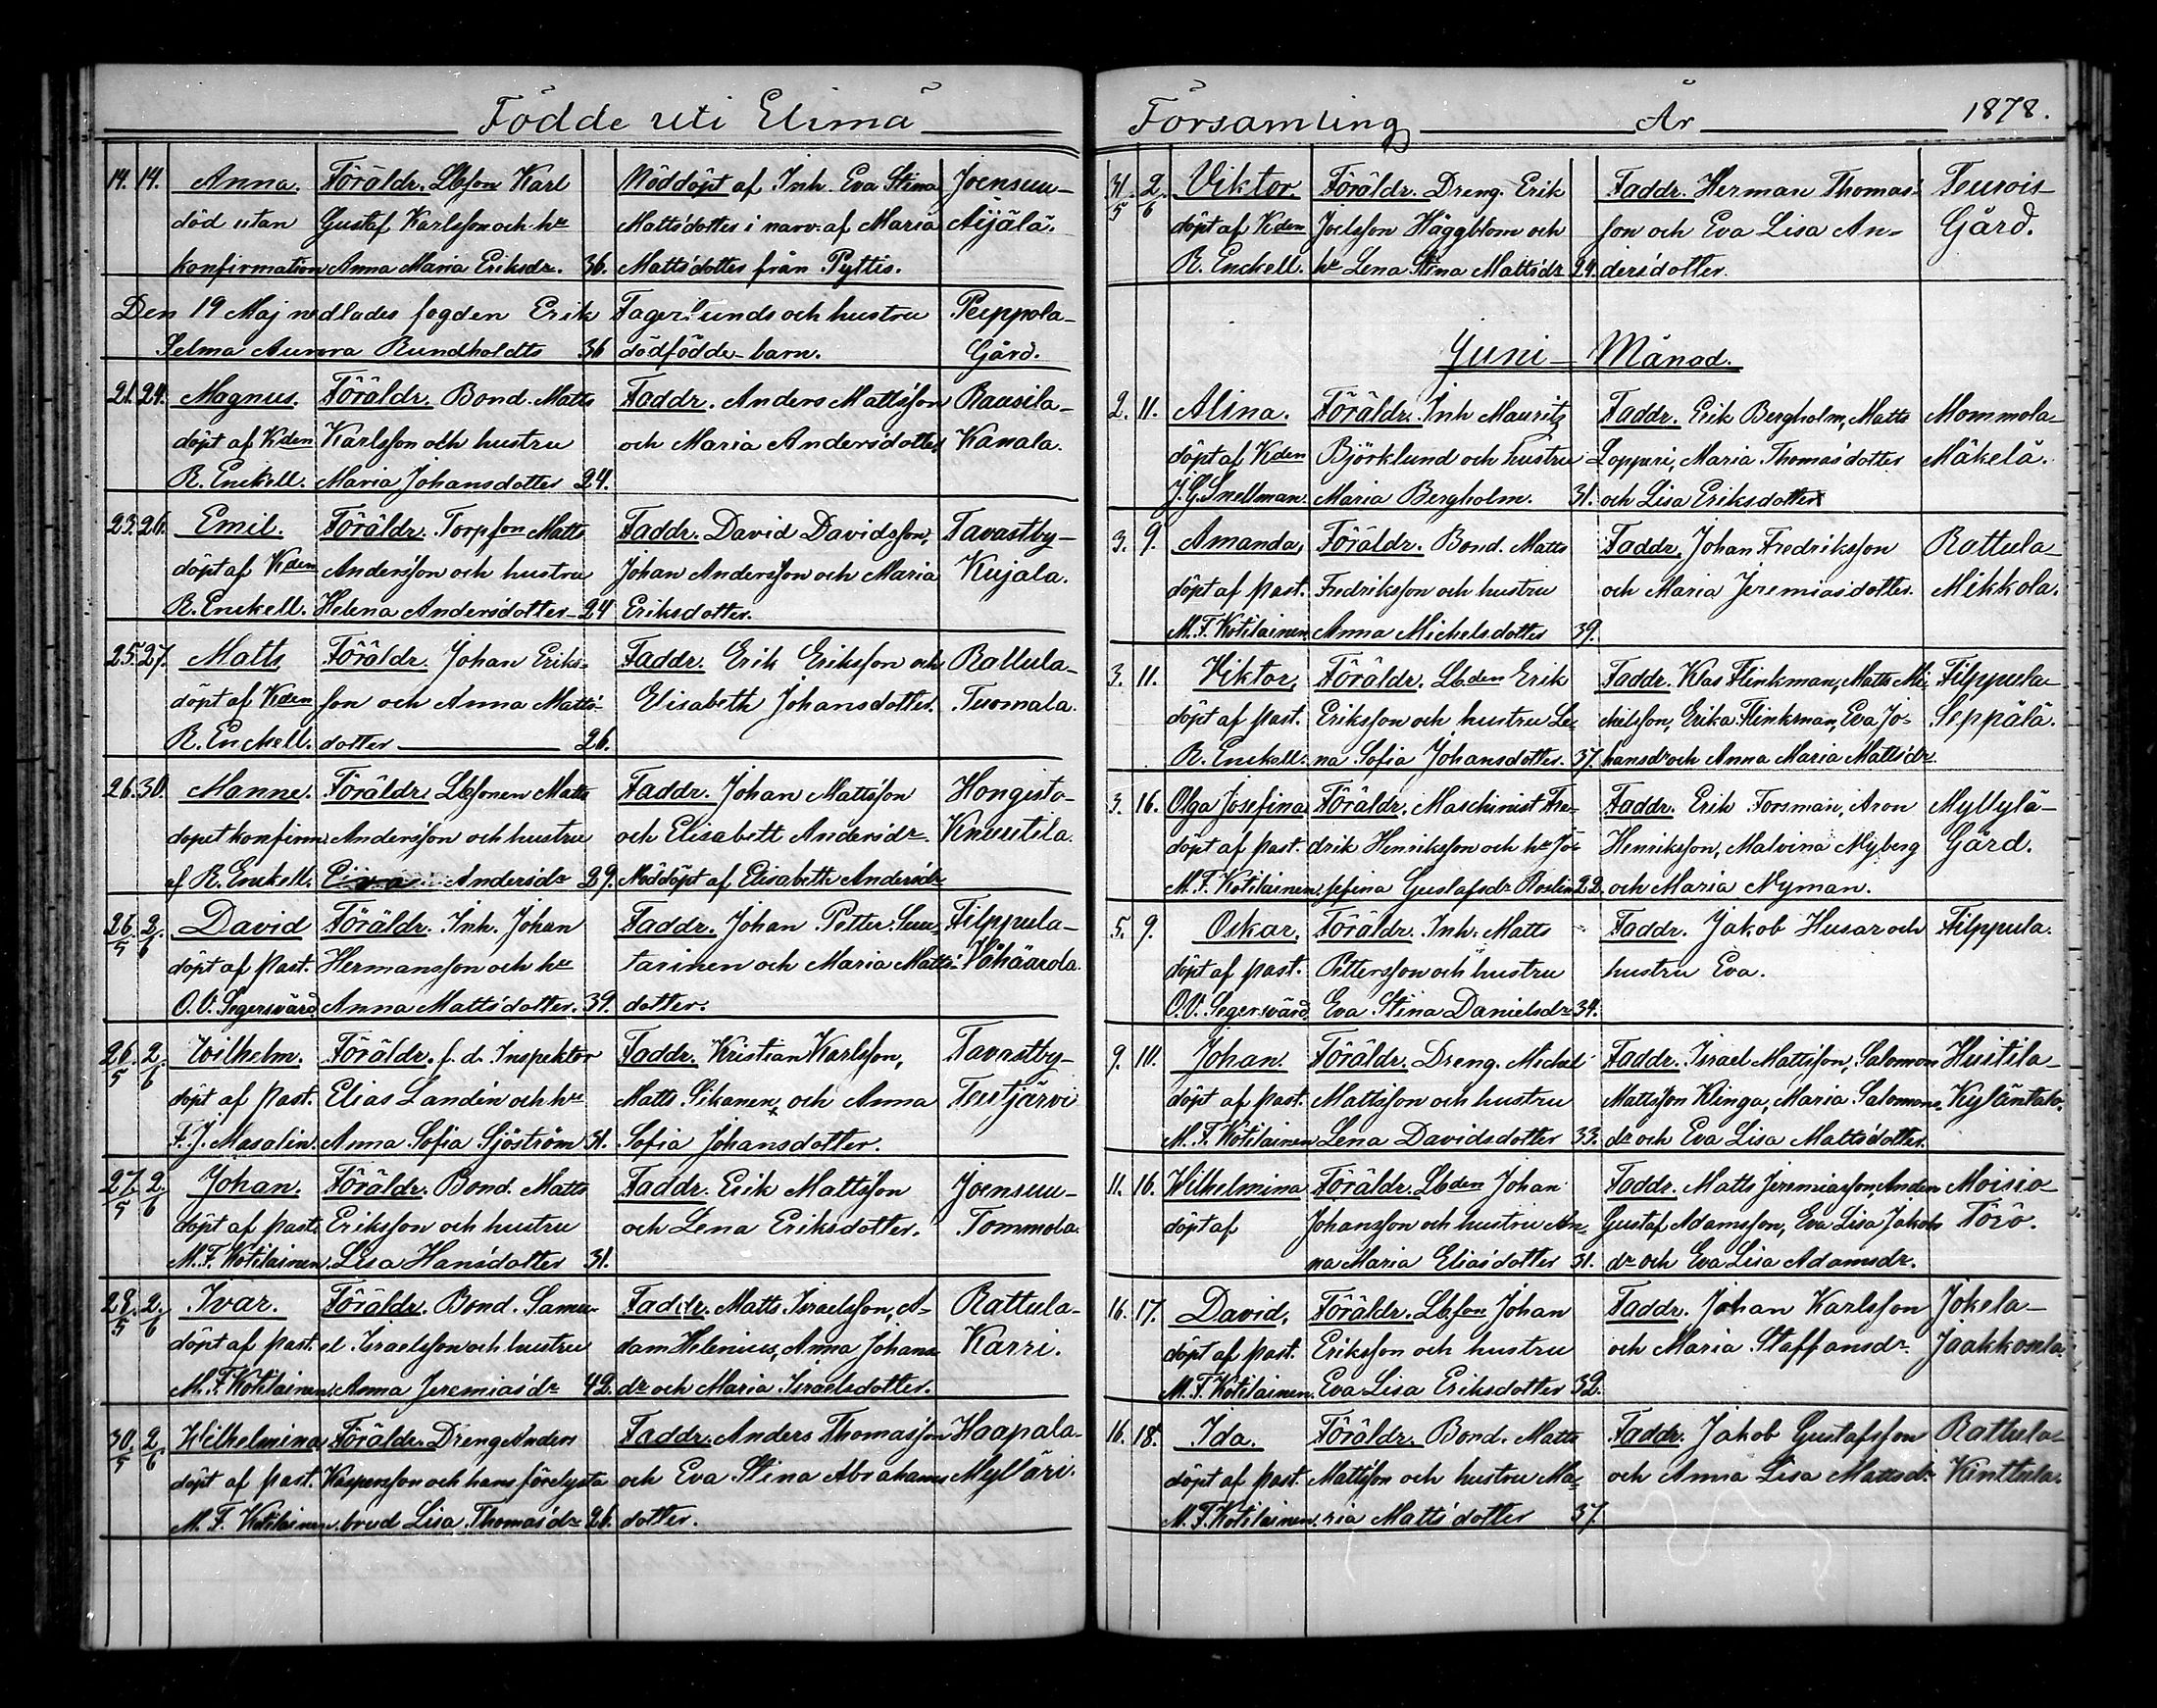 Födde uti Elimä
14. 14. Anna. Föräldr. Lbson Karl 
död utan Gustaf Karlsson och hu
konfirmation Anna Maria Eriksdr. 36.
Nöddöpt af Inh. Eva Stina Joensuu-
Mattsdotter i narv. af Maria Äijälä.
Mattsdotter från Pyttis.
Den 19 Maj nedlades fogden Erik Fagerlunds och hustru Peippola-
Selma Aurora Rundholdts 36 dödfödde barn. Gård.
21. 24. Magnus. Föräldr. Bond. Matts Faddr. Anders Mattsson Rausila-
döpt af Kden Karlsson och hustru och Maria Andersdotter. Kanala.
R. Enckell. Maria Johansdotter 24.
23. 26. Emil. Föräldr. Torpson Matts Faddr. David Davidsson, Tavastby-
döpt af Kden Andersson och hustru Johan Andersson och Maria Kujala.
R. Enckell. Helena Andersdotter 24 Eriksdotter.
25. 27. Matts Föräldr. Johan Eriks- Faddr. Erik Eriksson och Rattula-
döpt af Kden son och Anna Matts- Elisabeth Johansdotter. Tuomala.
R. Enckell. dotter 26.
26. 30. Manne. Föräldr. Lbsonen Matts Faddr. Johan Mattsson Hongisto-
döpet konfirm. Andersson och hustru och Elisabett Andersdr. Knuutila.
af R. Enckell. Andersdr 29. Nöddöpt af Elisabeth Andersdr
26/5 2/6 David Föräldr. Inh. Johan Faddr. Johan Petter Luu- Filppula-
döpt af past. Hermansson och hu tarinen och Maria Matts- Vähäarola.
O.V. Segersvärd. Anna Mattsdotter. 39. dotter.
26/5 2/6 Wilhelm. Föräldr. f.d. Inspektor Faddr. Kristian Karlsson, Tavastby-
döpt af Past. Elias Landén och hu Matts Sikanen, och Anna Teutjärvi
F.J. Masalin. Anna Sofia Sjöström 31. Sofia Johansdotter.
27/5 2/6 Johan. Föräldr. Bond. Matts Faddr. Erik Mattsson Joensuu-
döpt af past. Eriksson och hustru och Lena Eriksdotter. Tommola.
M.F. Kotilainen. Lisa Hansdotter 31.
28/5 2/6 Ivar. Föräldr. Bond. Samu- Faddr. Matts Israelsson, A- Rattula-
döpt af past. el Israelsson och hustru dam Helenius, Anna Johans Karri.
M.F. Kotilainen. Anna Jeremiasdr 42. dr och Maria Israelsdotter.
30/5 2/6 Wilhelmina Föräldr. Dreng Anders Faddr. Anders Thomasson Haapala-
döpt af past. Kaspersson och hans förelysta och Eva Stina Abrahams Mylläri.
M.F. Kotilainen. brud Lisa Thomasdr 26. dotter.
Församling År 1878.
31/5 2/6 Viktor Föräldr. Dreng. Erik Faddr. Herman Thomas- Teurois
döpt af Kden Joelsson Häggblom och son och Eva Lisa An- Gård.
R. Enckell. hu Lena Stina Mattsdr 24. dersdotter.
Juni Månad.
2. 11. Alina. Föräldr. Inh Mauritz Faddr. Erik Bergholm, Matts Mommola-
döpt af Kden Björklund och hustru Lopperi, Maria Thomasdotter Mäkelä.
J.G. Snellman. Maria Bergholm. 31. och Lisa Eriksdotter
3. 9. Amanda, Föräldr. Bond. Matts Faddr, Johan Fredriksson Rattula-
döpt af past. Fredriksson och hustru och Maria Jeremiasdotter. Mikkola.
M.F. Kotilainen. Anna Michelsdotter 39.
3. 11. Viktor, Föräldr. Lbden Erik Faddr. Klas Flinkman, Matts Mi- Filppula-
döpt af past. Eriksson och hustru Le- chelsson, Erika Flinkman, Eva Jo- Seppälä.
R. Enckell. na Sofia Johansdotter. 37. hansdr och Anna Maria Mattsdr
3. 16. Olga Josefina Föräldr. Maschinist Fre- Faddr. Erik Forsman, Aron Myllylä-
döpt af past. drik Henriksson och hu Jo- Henriksson, Malvina Nyberg Gård.
M.F. Kotilainen. sefina Gustafsdr Roslin 22. och Maria Nyman.
5. 9. Oskar, Föräldr. Inh. Matts Faddr. Jakob Husar och Filppula.
döpt af past. Pettersson och hustru hustru Eva.
O.V. Segersvärd. Eva Stina Danielsdr 34.
9. 10. Johan. Föräldr. Dreng. Michel Faddr. Israel Mattsson, Salomon Huitila-
döpt af past. Mattsson och hustru Mattsson Klinga, Maria Salomons- Kyläntak.
M.F. Kotilainen Lena Davidsdotter 33. dr och Eva Lisa Mattsdotter.
11. 16. Wilhelmina Föräldr. Lbden Johan Faddr. Matts Jeremiasson, Anders Moisio
döpt af Johansson och hustru An- Gustaf Adamsson, Eva Lisa Jakobs Törö.
na Maria Eliasdotter 31. dr och Eva Lisa Adamsdr.
16. 17. David, Föräldr. Lbson Johan Faddr. Johan Karlsson Jokela-
döpt af past. Eriksson och hustru och Maria Staffansdr. Jaakkonla.
M.F. Kotilainen. Eva Lisa Eriksdotter 32.
16. 18. Ida. Föräldr. Bond. Matts Faddr. Jakob Gustafsson Rattula-
döpt af past. Mattsson och hustru Ma- och Anna Lisa Mattsdr Kinttula.
M.F. Kotilainen. ria Mattsdotter 37.